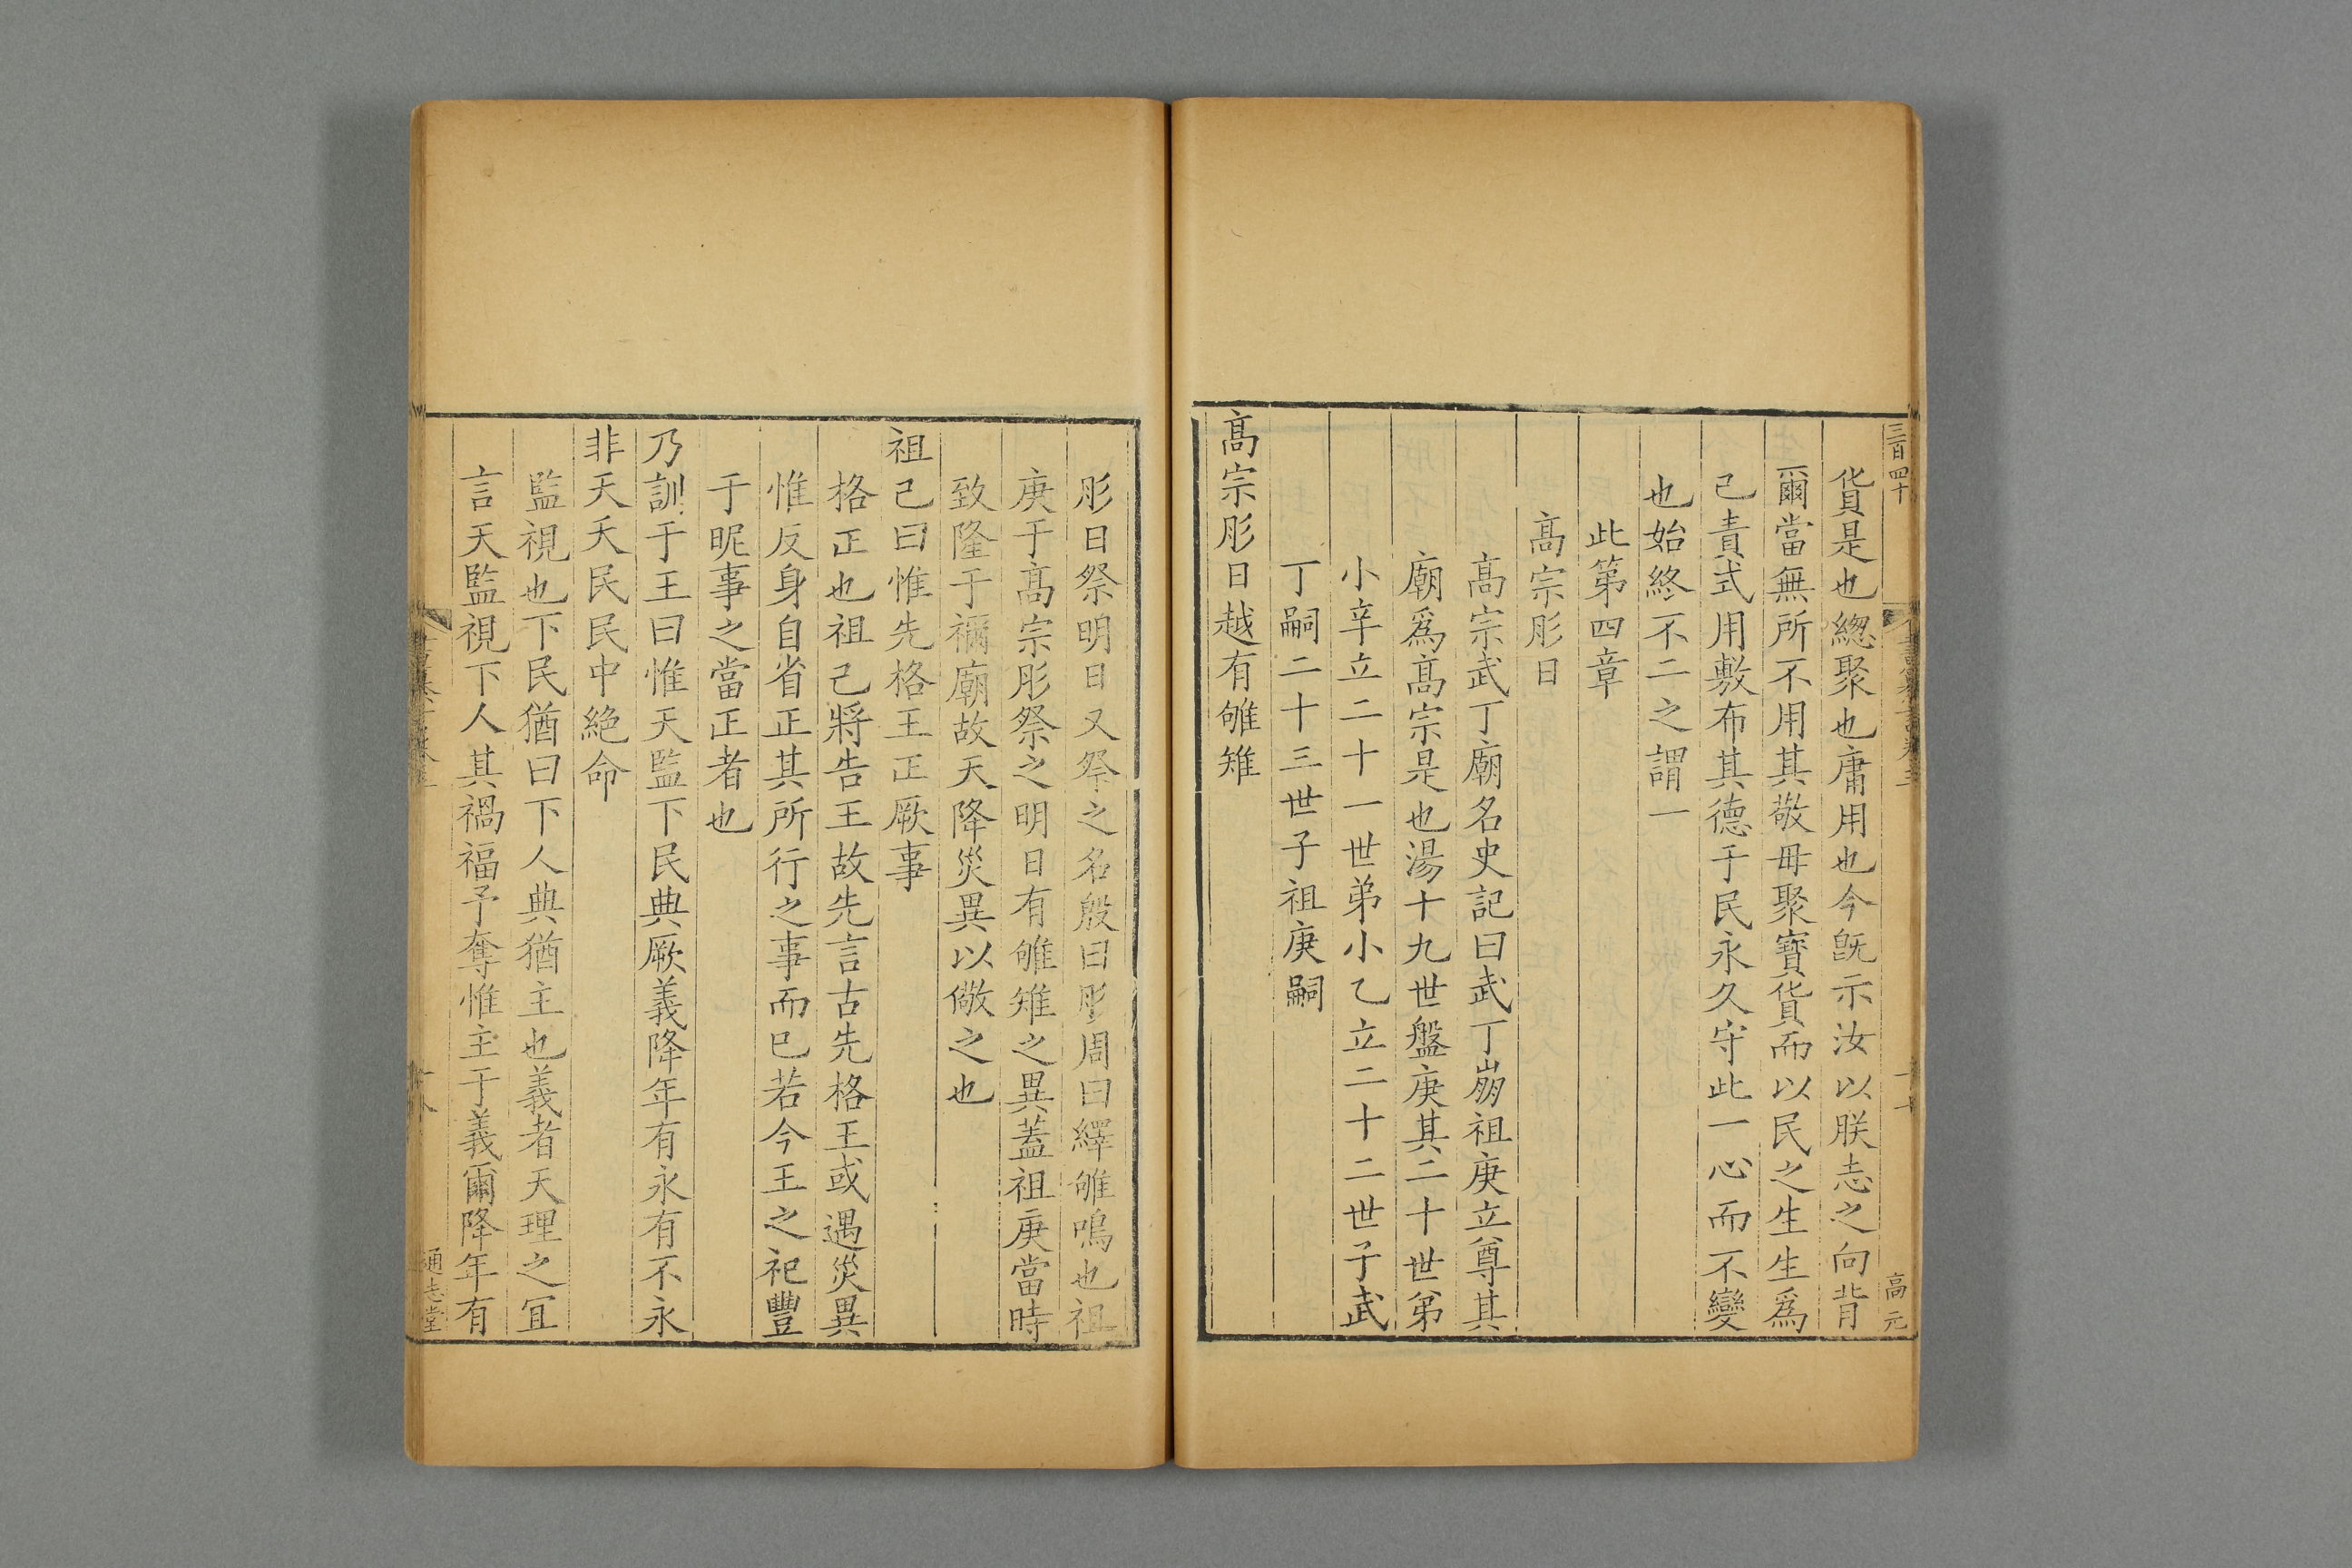 三百四十
高元
貨是也緫聚也庸用也今旣示汝以朕志之向背
爾當無所不用其敬毋聚寳貨而以民之生生爲
己責式用敷布其德于民永久守此一心而不變
也始終不二之謂一
此第四章
髙宗肜日
髙宗武丁廟名史記曰武丁崩祖庚立尊其
廟爲髙宗是也湯十九世盤庚其二十世弟
小辛立二十一世弟小乙立二十二世子武
丁嗣二十三世子祖庚嗣
髙宗肜日越有雊雉
肜日祭明日又祭之名殷曰肜周曰繹雊鳴也祖
庚于髙宗肜祭之明日有雊雉之異蓋祖庚當時
致隆于禰廟故天降災異以儆之也
祖己曰惟先格王正厥事
格正也祖己將告王故先言古先格王或遇災異
惟反身自省正其所行之事而已若今王之祀豐
于昵事之當正者也
乃訓于王曰惟天監下民典厥義降年有永有不永
非天夭民民中絶命
監視也下民猶曰下人典猶主也義者天理之宜
言天監視下人其禍福予奪惟主于義爾降年有
通志堂